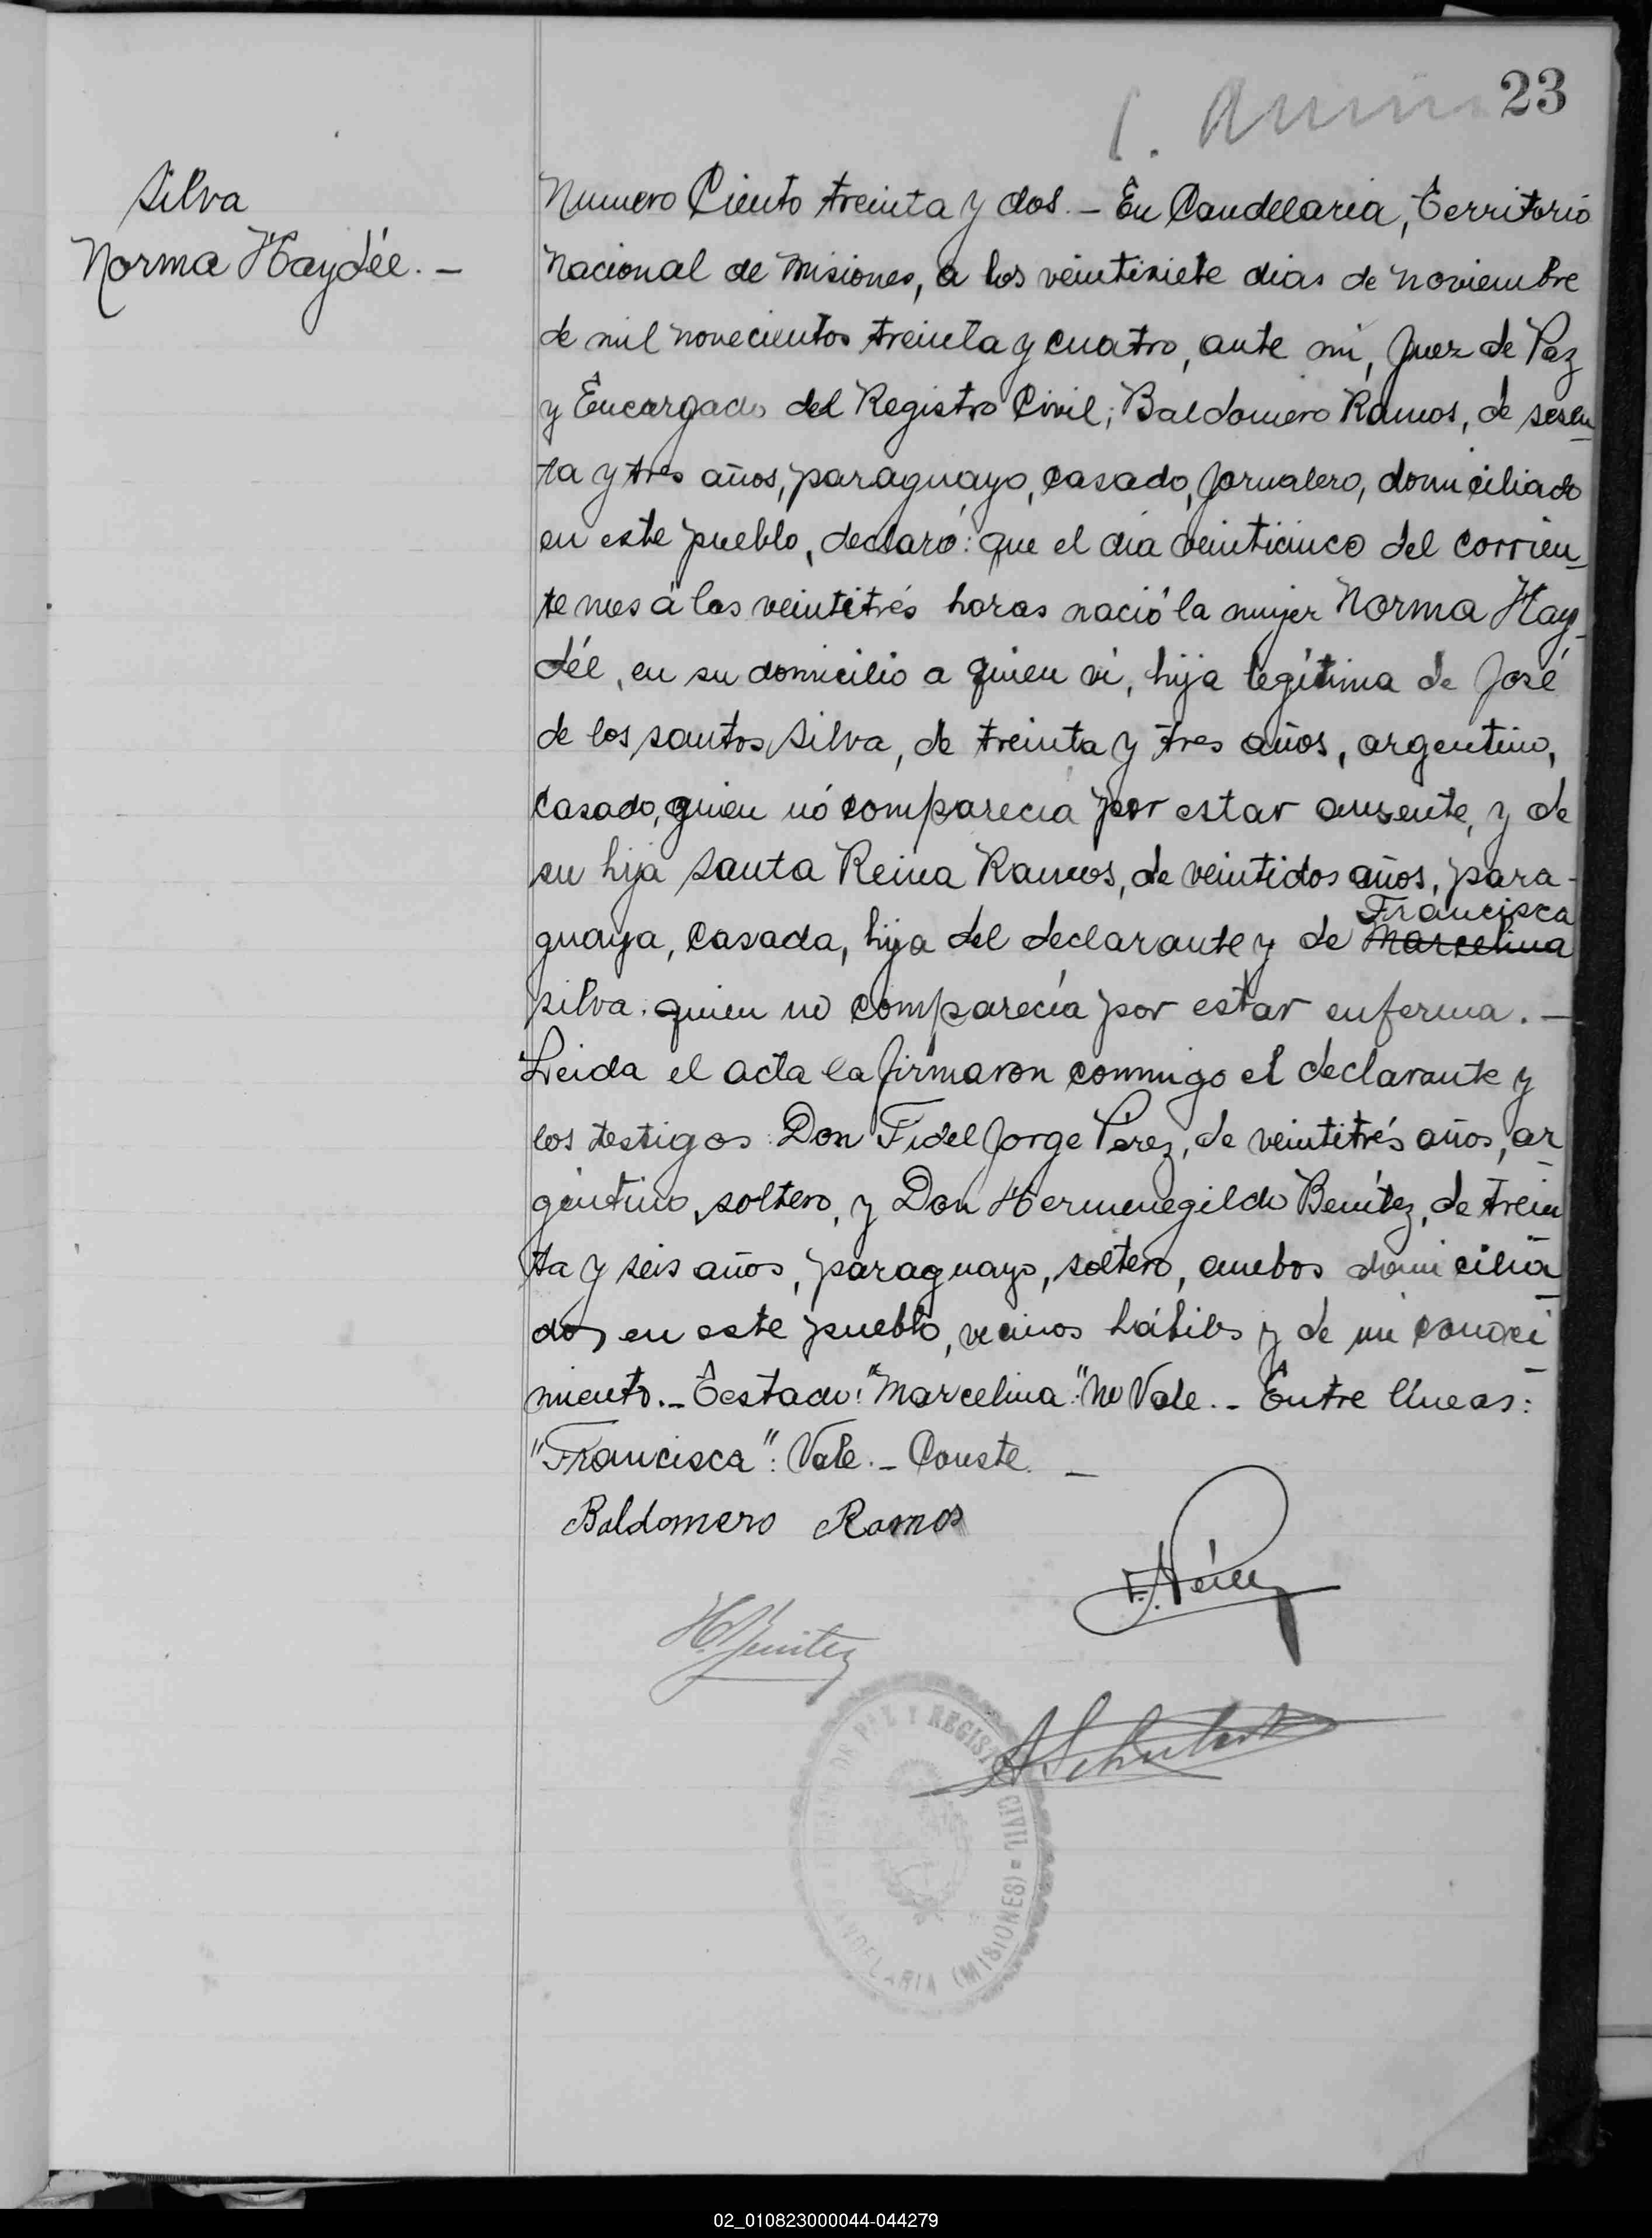 23
Silva
Norma Haydée. –
Numero Ciento treinta y dos. – En Candelaria, Territorio
Nacional de Misiones, a los veintisiete dias de noviembre
de mil novecientos treinta y cuatro, ante mi, Juez de Paz
y Encargado del Registro Civil; Baldomero Ramos, de sesen_
ta y tres años, paraguayo, casado, jornalero, domiciliado
en este pueblo, declaró: que el dia veinticinco del corrien_
te mes á las veintitrés horas nació la mujer Norma Hay_
dée, en su domicilio a quien ví, hija legítima de José
de los santos Silva, de treinta y tres años, argentino,
casado, quien nó comparecia por estar ausente, y de
su hija Santa Reina Ramos, de veintidos años, para-
guaya, casada, hija del declarante y de Francisca
Marcelina
Silva. quien no comparecía por estar enferma. –
Leida el acta la firmaron conmigo el declarante y
los testigos: Don Fidel Jorge Pérez, de veintitrés años, ar_
gentino, soltero, y Don Hermenegildo Benítez, de trein_
ta y seis años, paraguayo, soltero, ambos domicilia_
dos en este pueblo, vecinos hábiles y de mi conoci_
miento. – Testado: "Marcelina": No Vale. – Entre líneas:
"Francisca": Vale. – Conste. –
Baldomero Ramos
F. J. Pérez
H. Benitez
DE PAZ Y REGISTRO CIVIL = CANDELARIA (MISIONES)
02_010823000044-044279